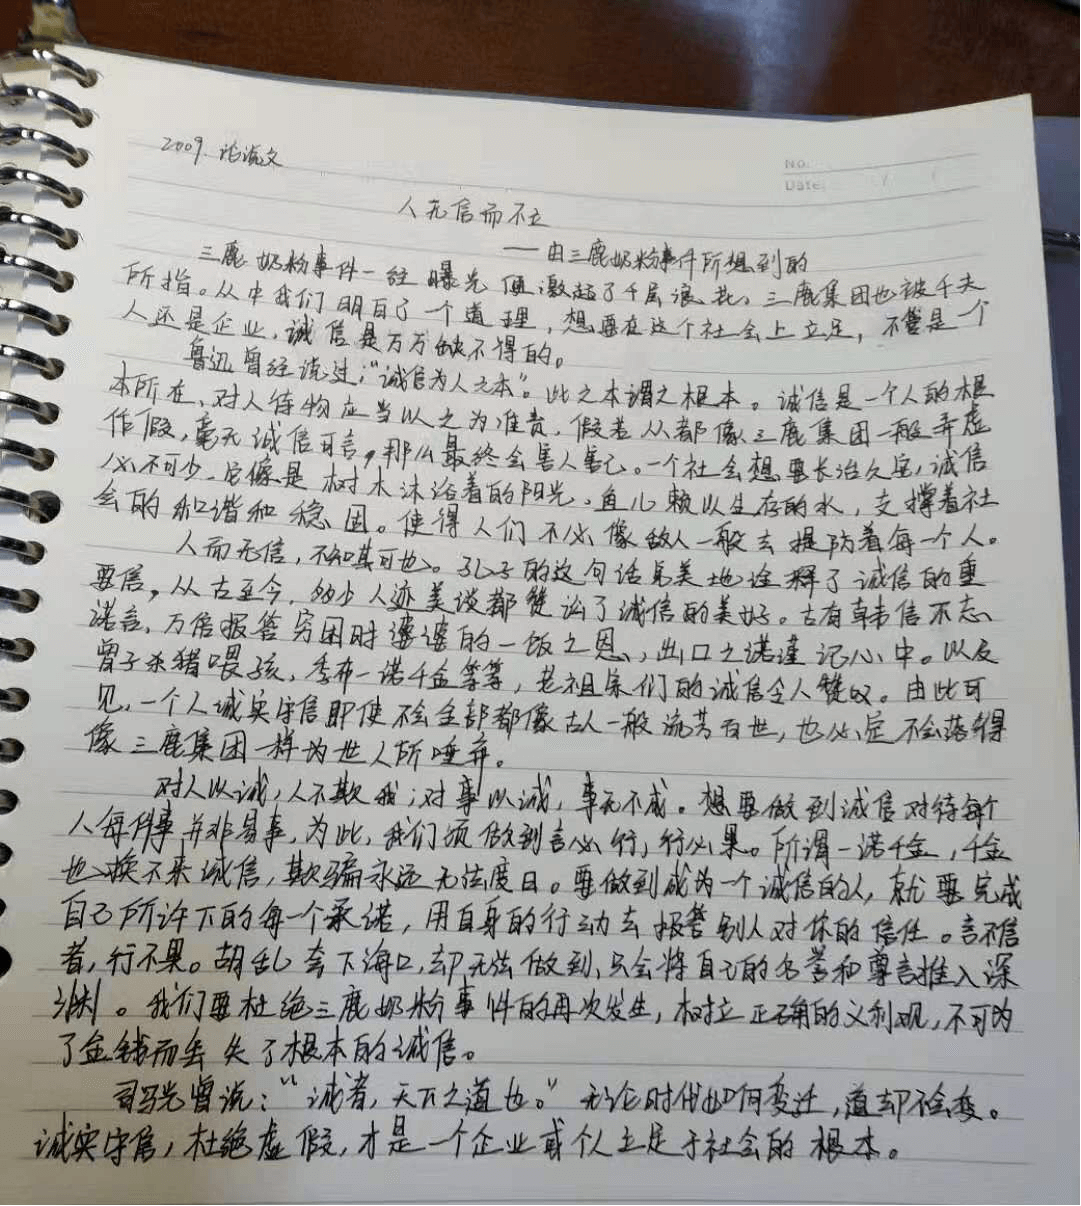 2009. 论说文
No.
Date.
人无信而不立
——由三鹿奶粉事件所想到的
三鹿奶粉事件一经曝光便激起了千层浪花,三鹿集团也被千夫
所指。从中我们明白了一个道理,想要在这个社会上立足,不管是一个
人还是企业,诚信是万万缺不得的。
鲁迅曾经说过:“诚信为人之本”。此之本谓之根本。诚信是一个人的根
本所在,对人待物应当以之为准责,假若人都像三鹿集团一般弄虚
作假,毫无诚信可言,那么最终会害人害己。一个社会想要长治久安,诚信
必不可少,它像是树木沐浴着的阳光、鱼儿赖以生存的水,支撑着社
会的和谐和稳固。使得人们不必像敌人一般去提防着每一个人。
人而无信,不知其可也。孔子的这句话完美地诠释了诚信的重
要信,从古至今,多少人迹美谈都 论了诚信的美好。古有韩信不忘
诺言,万倍报答穷困时婆婆的一饭之恩,出口之诺谨记心中。以及
曾子杀猪喂孩,季布一诺千金等等,老祖宗们的诚信令人赞叹。由此可
见,一个人诚实守信即使不会全部都像古人一般流芳百世,也必定不会落得
像三鹿集团一样为世人所唾弃。
对人以诚,人不欺我;对事以诚,事无不成。想要做到诚信对待每个
人每件事并非易事,为此,我们须做到言必行,行必果。所谓一诺千金,千金
也换不来诚信,欺骗永远无法度日。要做到成为一个诚信的人,就要完成
自己所许下的每一个承诺,用自身的行动去报答别人对你的信任。言不信
者,行不果。胡乱夸下海口,却无法做到,只会将自己的名誉和尊言推入深
渊。我们要杜绝三鹿奶粉事件的再次发生,树立正确的义利观,不可为
了金钱而丢失了根本的诚信。
司马光曾说:“诚者,天下之道也。”无论时代如何变迁,道却不会变。
诚实守信,杜绝虚假,才是一个企业或个人立足于社会的根本。